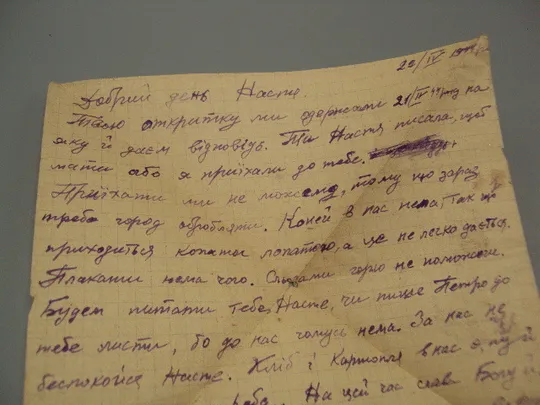 26/IV 1944
Добрий день Настя.
Твою открытку ми одержали 21/IV на
яку й даєм відповідь. Ти Настя писала, щоб
мати або я приїхали до тебе.
Приїхати ми не можемо, тому що зараз
треба город обробляти. Коней в нас нема, так що
приходиться копати лопатою, а це не легко дається.
Плакати нема чого. Слізами горю не поможеш.
Будем питати тебе, Настє, чи пише Петро до
тебе листи, бо до нас чомусь нема. За нас не
беспокойся Настє. Хліб і Картопля в нас є, ну й
На цей час слава Богу й